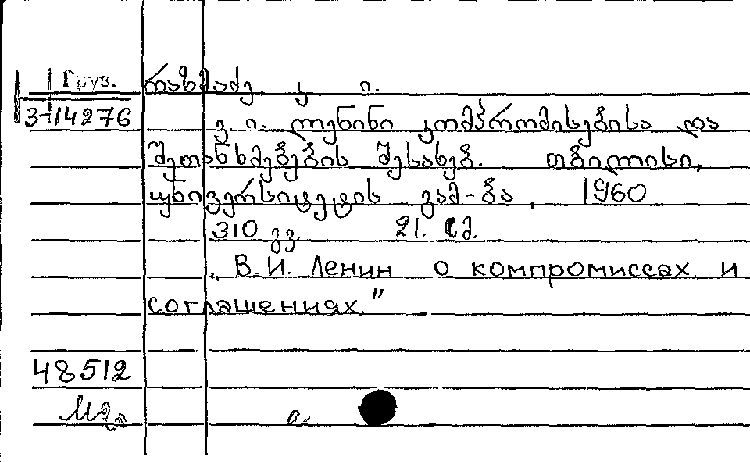 Груз. რაზმაძე კ. ი.
3-14276 ვ. ი. ლენინი კომპრომისებისა და
შეთანხმებების შესახებ. თბილისი,
უნივერსიტეტის გამ-ბა, 1960
310 გვ. 21. სმ.
„В. И. Ленин о компромиссах и
соглашениях"
48512